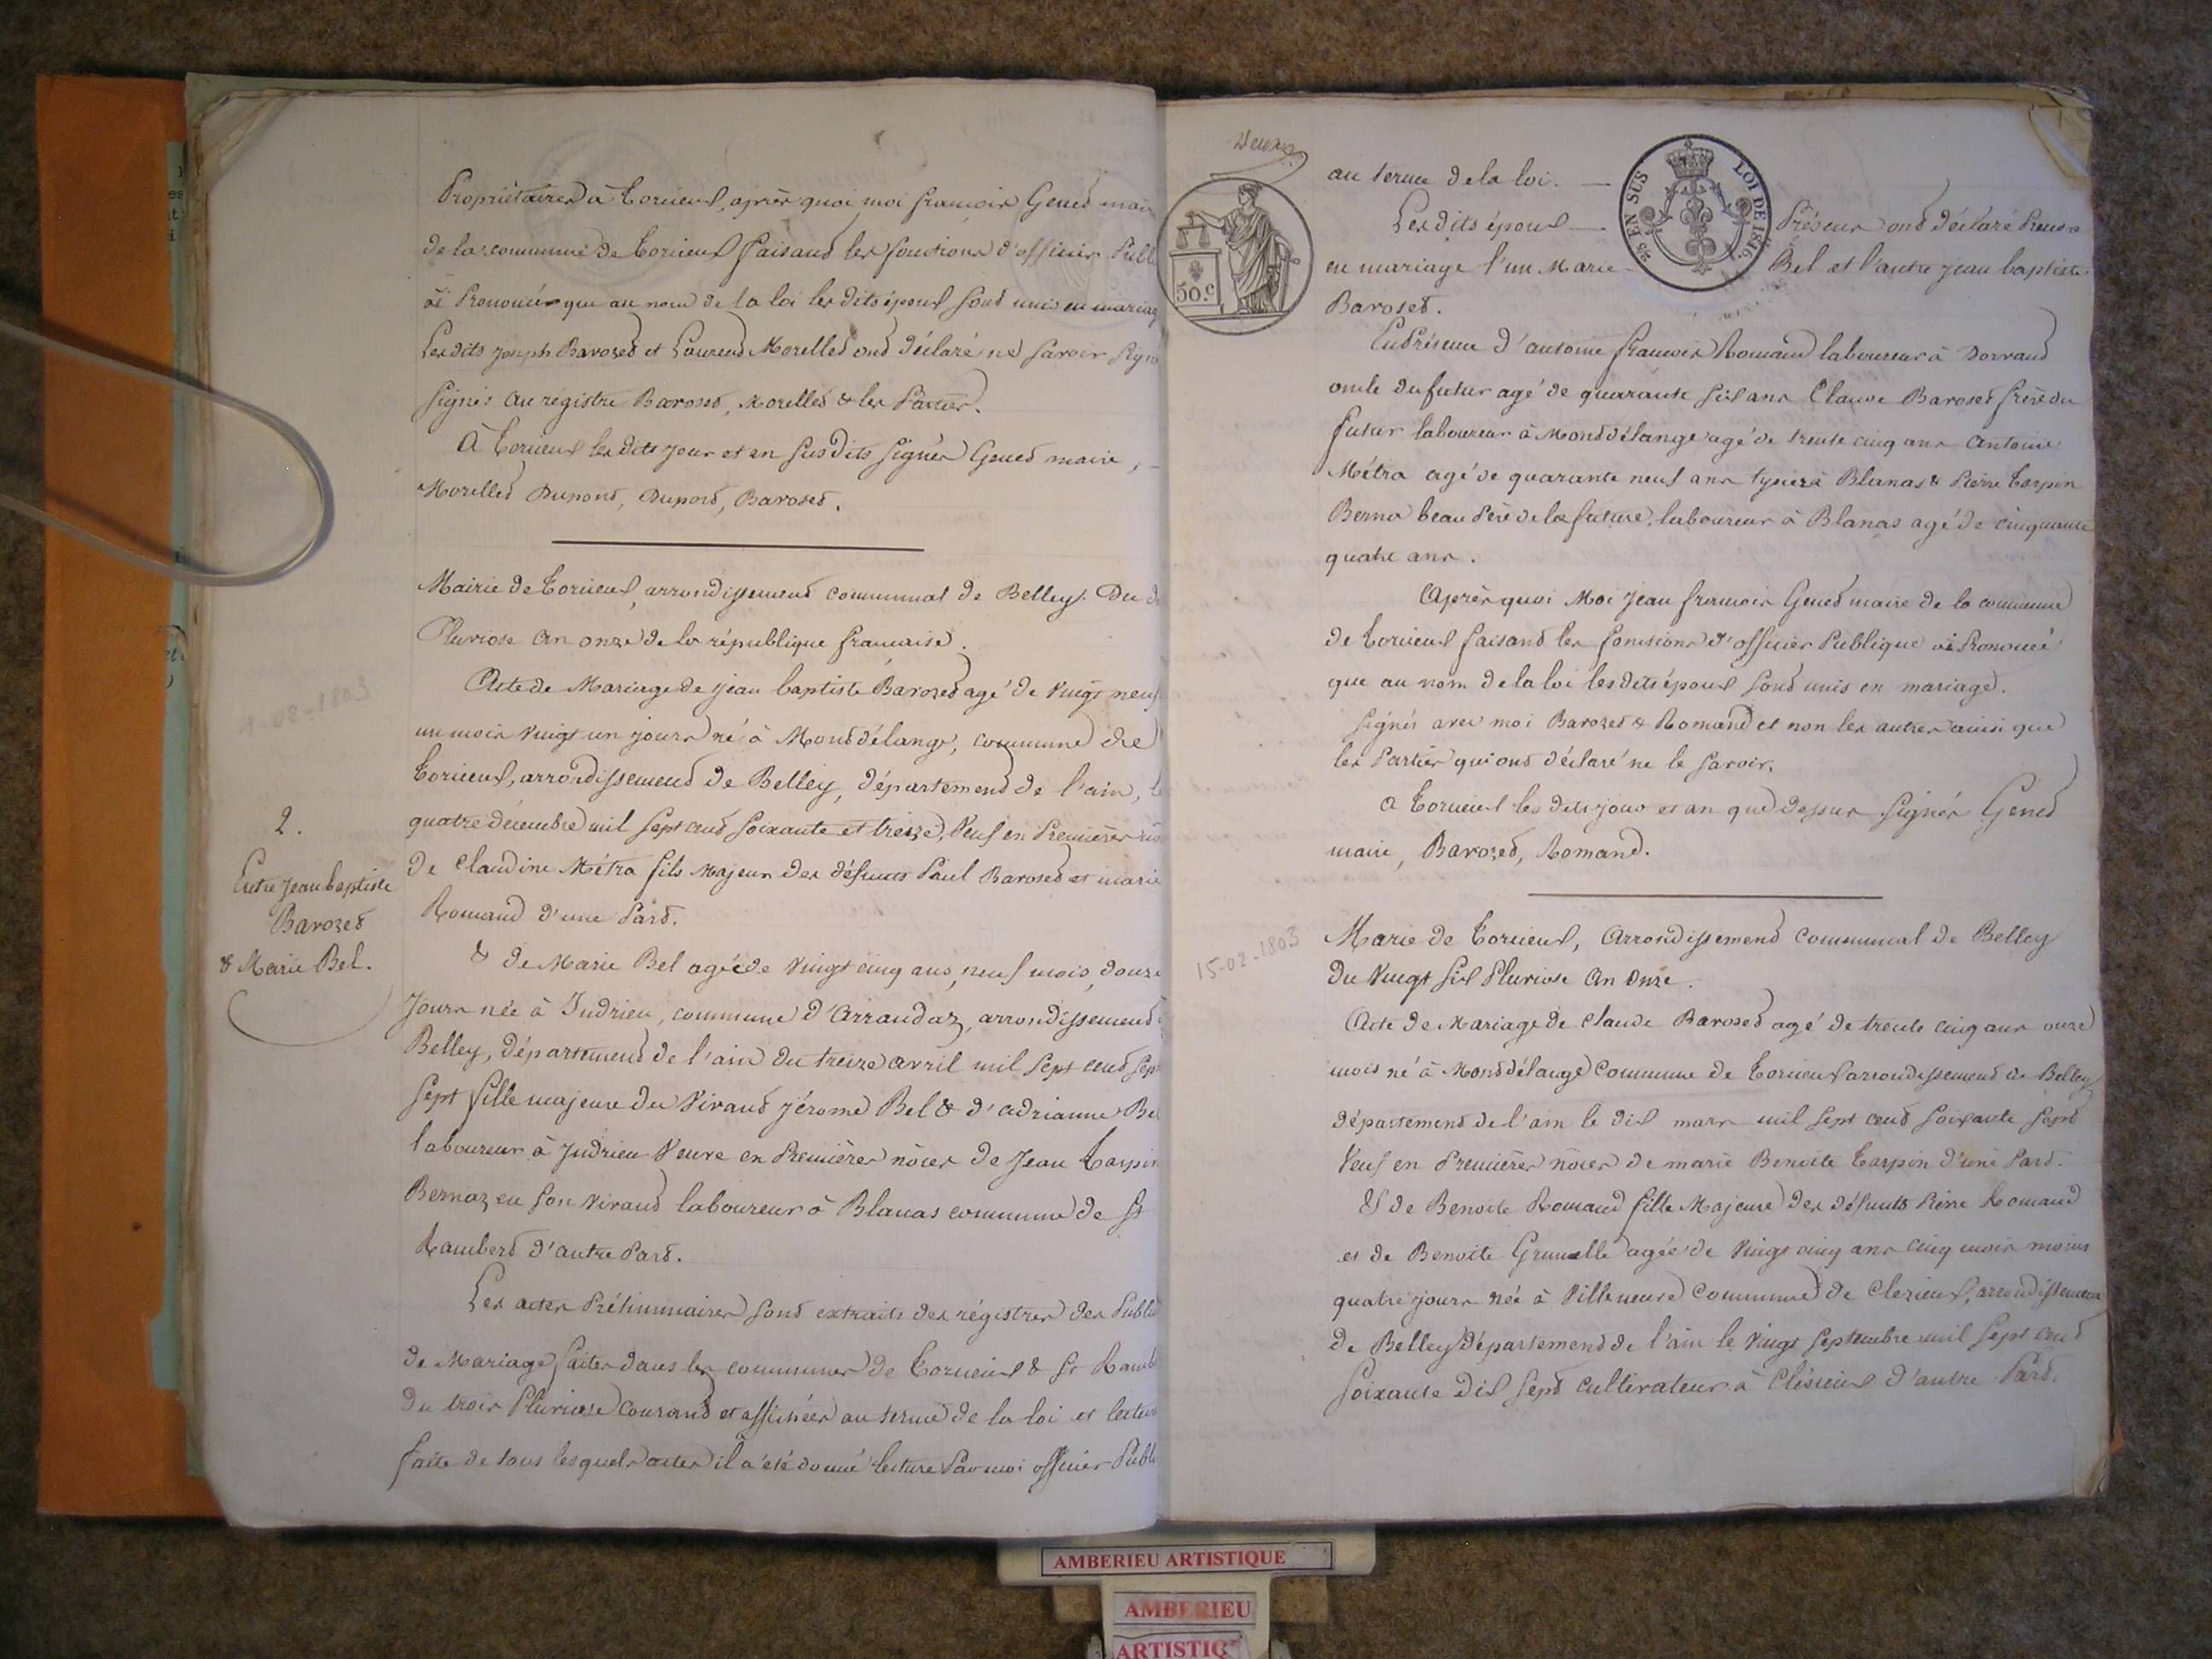 Propriétaires à Torcieux, après quoi moi françois Gened mair
de la commune de Torcieux faisand les fonctions d'officier Publ
ai Prononcés que au nom de la loi les dits époux sond unis en mariag
Les dits Joseph Barozed et Laurend Morelled ond déclaré ne savoir signe
signés au régistre Barozed, Morelled & les Parties.
à Torcieux les dits jour et an susdits signés Gened maire,
Morelled Dupond, Dupond, Barozed.
Mairie de Torcieux, arrondissemend communal de Belley. Du d
Pluviose an onze de la république française.
Acte de Mariage de jean baptiste Barozed agé de vingt neuf
un mois vingt un jours né à Mond délange, commune de
Torcieux, arrondissemend de Belley, départemend de l'ain, le
quatre décembre mil sept cend soixante et treize, veuf en Premières
de Claudine Métra fils Majeur des défunts Paul Barozed et marie
Romand d'une Pard.
& de Marie Bel agée de vingt cinq ans, neuf mois, douze
jours née à Indrieu, commune d'Arrandaz, arrondissemend
Belley, départemend de l'ain du treize avril mil sept cend sept
sept fille majeure du vivand jérome Bel & d'adrianne Be
laboureur à Indrieu veuve en Premières nôces de Jean Tarpin
Bernaz en son vivand laboureur à Blanas commune de St
Ramberd d'autre Pard.
Les actes Préliminaires sond extraits des régistres des Public
de Mariage faites dans les communes de Torcieux & St Ramb
du trois Pluviose courand et affichées au terme de la loi et lectur
faite de tous lesquels actes il a été donné lecture Par moi officier Publ
2.
Entre Jean baptiste
Barozed
& Marie Bel.
-02-1803
Deux
50.c
25 EN SUS
LOI DE 1816.
au terme de la loi.
Les dits époux Présens ond déclaré Prendre
en mariage l'un Marie Bel et l'autre jean baptiste
Barozed.
En Présence d'antoine françois Romand laboureur à Dorvand
oncle du futur agé de quarante six ans Claude Barozed frère du
futur laboureur à Mond délange agé de trente cinq ans Antoine
Métra agé de quarante neuf ans à Blanas & Pierre Tarpin
Berna beau Père de la future, laboureur à Blanas agé de cinquante
quatre ans.
Après quoi Moi Jean françois Gened maire de la commune
de Torcieux faisand les fonctions d'officier Publique ai Prononcé
que au nom de la loi les dits époux sond unis en mariage.
signés avec moi Barozed & Romand et non les autres ainsi que
les Parties qui ond déclaré ne le savoir.
à Torcieux les dits jour et an que dessus signés Gened
maire, Barozed, Romand.
15-02-1803
Marie de Torcieux, Arrondissemend Communal de Belley
du Vingt six Pluviose an onze.
Acte de Mariage de Claude Barozed agé de trente cinq ans onze
mois né à Mond délange Commune de Torcieux arrondissemend de Belley
départemend de l'ain le dix mars mil sept cend soixante sept
veuf en Premières nôces de marie Benoite Tarpin d'une Pard.
& de Benoite Romand fille Majeure des défunts Pierre Romand
et de Benoite Grumelle agée de vingt cinq ans cinq mois moins
quatre jours née à Villeneuve Commune de Clezieux, arrondissemend
de Belley départemend de l'ain le vingt septembre mil sept cend
soixante dix sept cultivateur à Clésieux d'autre Pard.
AMBERIEU ARTISTIQUE
AMBERIEU
ARTISTIQ